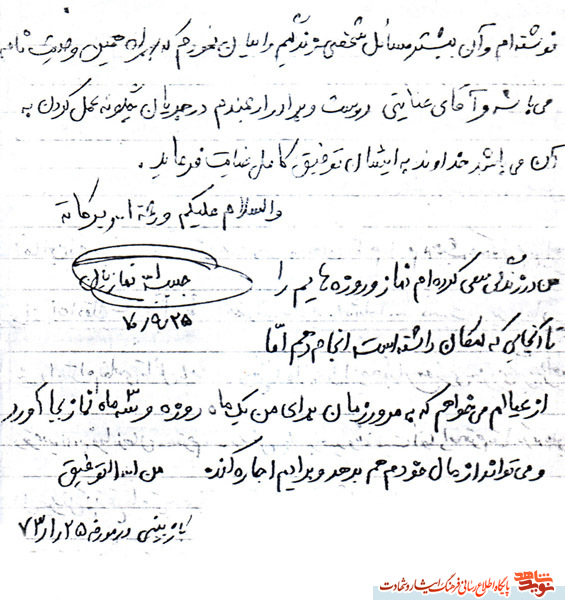 نوشته‌ام و آن بیشتر مسائل شخصی زندگیم را بیان نمودم که همراه همین وصیت نامه
می‌باشد و آقای عنایتی دوست و برادر ارجمندم در جریان چگونه عمل کردن به
آن می‌باشد خداوند به ایشان توفیق کامل عنایت فرماید.
والسلام علیکم و رحمة الله و برکاته
من در زندگی سعی کرده‌ام نماز و روزه هایم را
حبیب الله نمازیان
تا آنجایی که امکان داشته است انجام دهم اما
۶۰/۹/۲۵
از عیالم می‌خواهم که به مرور زمان برای من یک ماه روزه و ۳ ماه نماز بجا آورد
و می‌تواند از مال خودم هم بدهد و برایم اجاره کند. من الله التوفیق
بازبینی در مورخه ۲۵ر۱ر۷۳
نوید شاهد
پایگاه اطلاع رسانی فرهنگ ایثار و شهادت